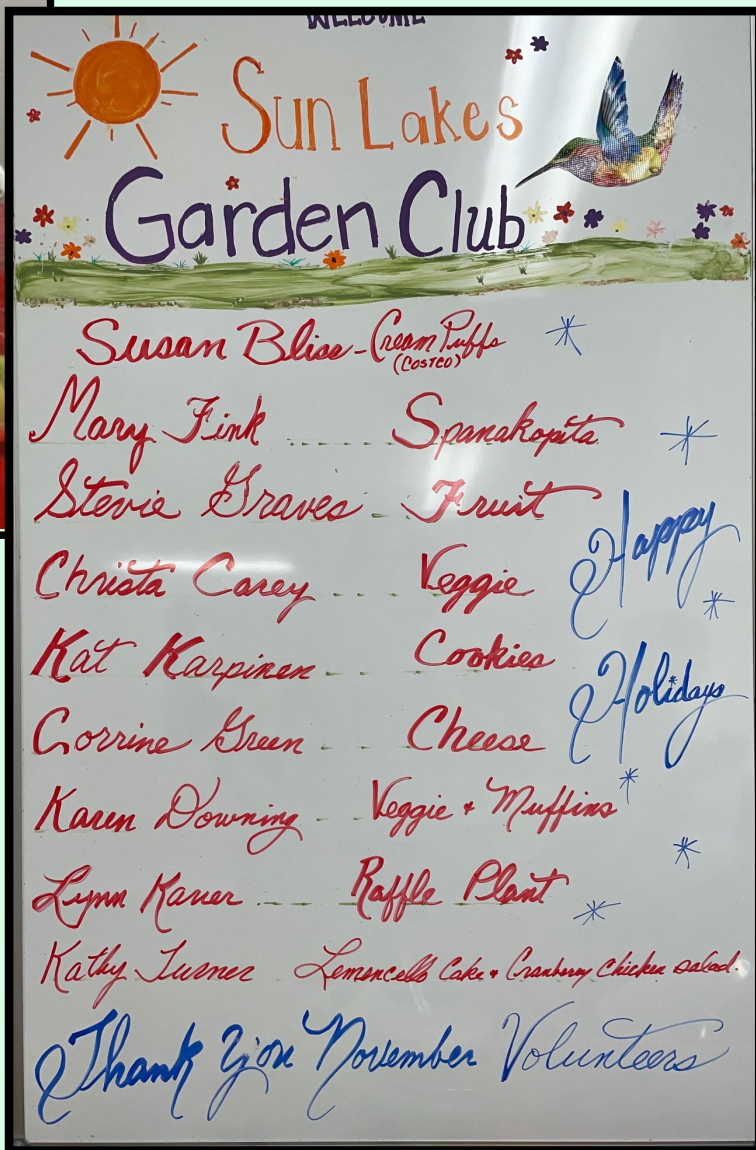 WELCOME
Sun Lakes
Garden Club
Susan Bliss - Cream Puffs
(COSTCO)
Mary Fink ..... Spanakopita
Stevie Graves ... Fruit
Christa Carey ... Veggie
Kat Karpinen ... Cookies
Corrine Green ... Cheese
Karen Downing ... Veggie + Muffins
Lynn Karer .... Raffle Plant
Kathy Turner Lemencello Cake + Cranberry Chicken salad.
Happy
Holidays
Thank You November Volunteers